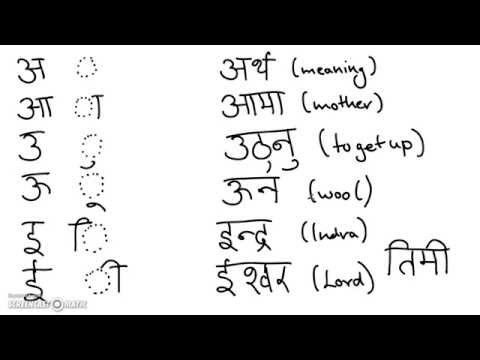 अ ◌ अर्थ (meaning)
आ ा आमा (mother)
उ ु उठ्नु (to get up)
ऊ ू ऊन (wool)
इ ि इन्द्र (Indra)
ई ी ईश्वर (Lord) तिमी
SCREENCAST-O-MATIC